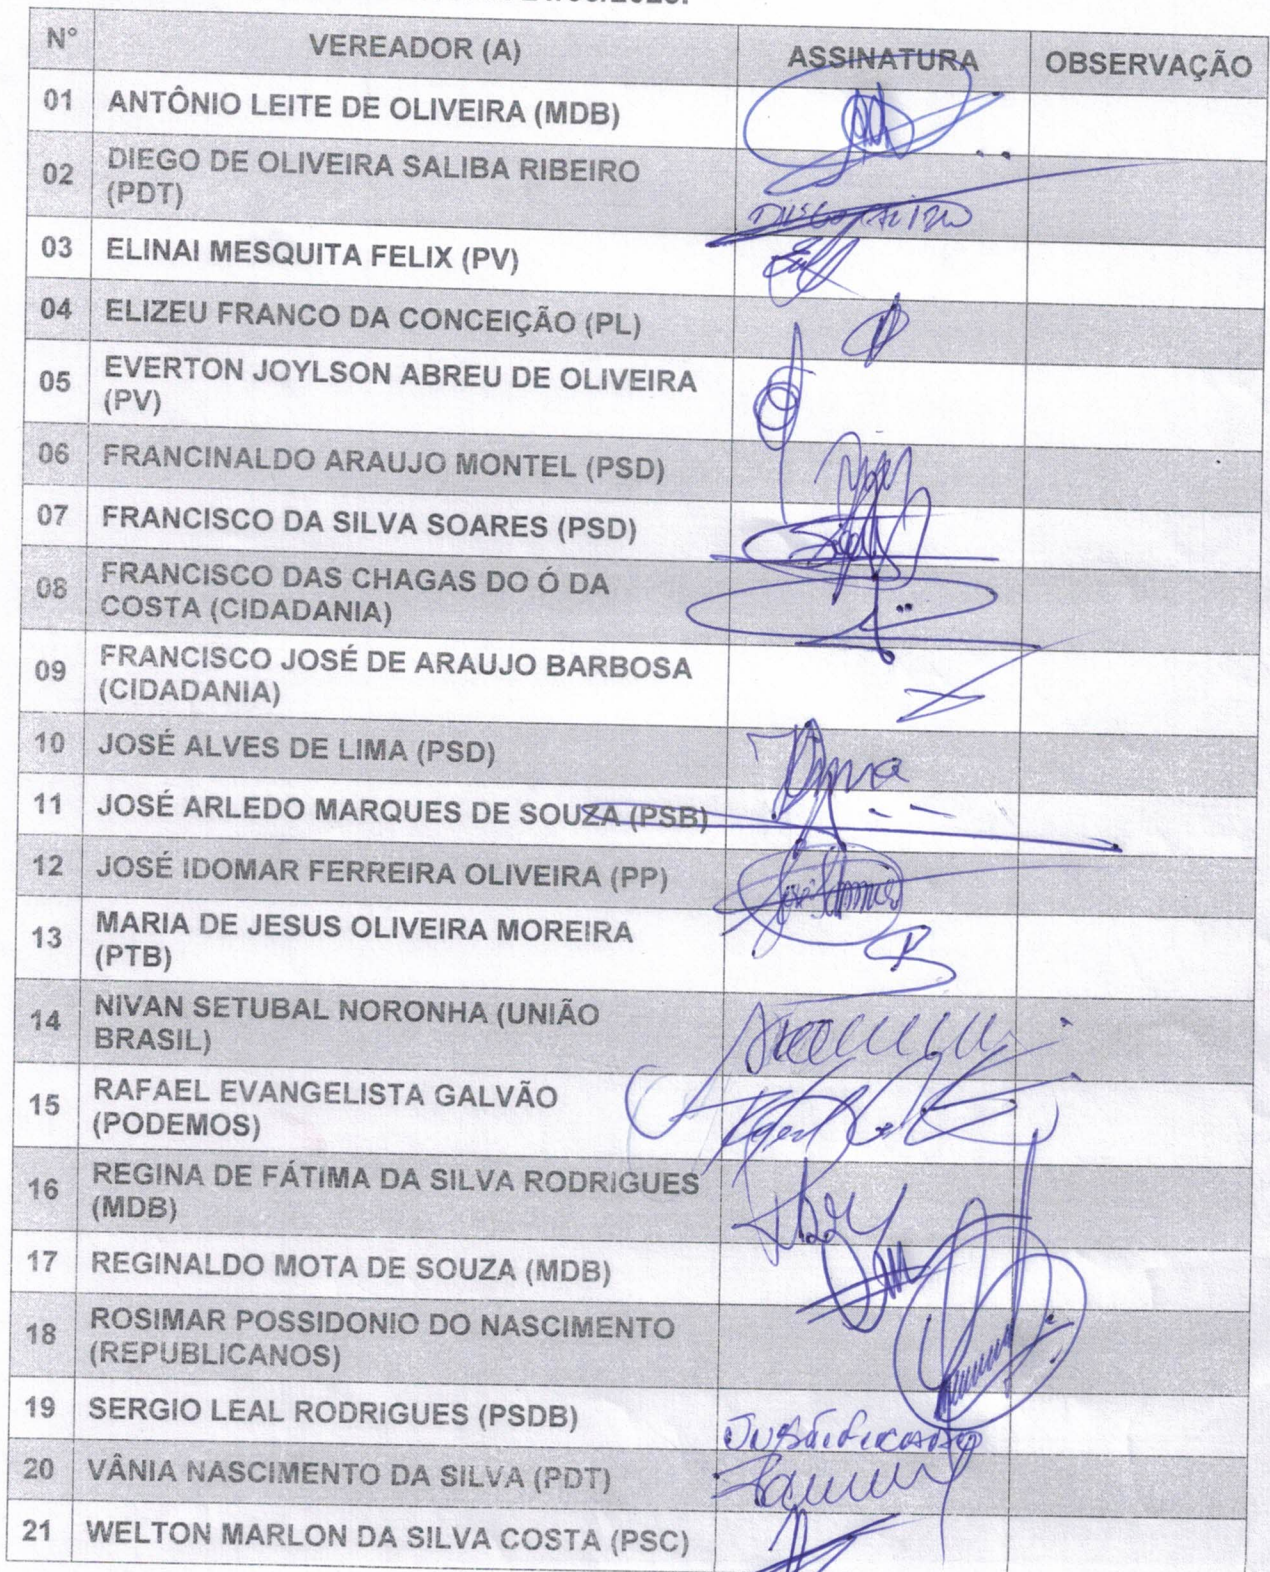 N° VEREADOR (A) ASSINATURA OBSERVAÇÃO
01 ANTÔNIO LEITE DE OLIVEIRA (MDB)
02 DIEGO DE OLIVEIRA SALIBA RIBEIRO
(PDT)
03 ELINAI MESQUITA FELIX (PV)
04 ELIZEU FRANCO DA CONCEIÇÃO (PL)
05 EVERTON JOYLSON ABREU DE OLIVEIRA
(PV)
06 FRANCINALDO ARAUJO MONTEL (PSD)
07 FRANCISCO DA SILVA SOARES (PSD)
08 FRANCISCO DAS CHAGAS DO Ó DA
COSTA (CIDADANIA)
09 FRANCISCO JOSÉ DE ARAUJO BARBOSA
(CIDADANIA)
10 JOSÉ ALVES DE LIMA (PSD)
11 JOSÉ ARLEDO MARQUES DE SOUZA (PSB)
12 JOSÉ IDOMAR FERREIRA OLIVEIRA (PP)
13 MARIA DE JESUS OLIVEIRA MOREIRA
(PTB)
14 NIVAN SETUBAL NORONHA (UNIÃO
BRASIL)
15 RAFAEL EVANGELISTA GALVÃO
(PODEMOS)
16 REGINA DE FÁTIMA DA SILVA RODRIGUES
(MDB)
17 REGINALDO MOTA DE SOUZA (MDB)
18 ROSIMAR POSSIDONIO DO NASCIMENTO
(REPUBLICANOS)
19 SERGIO LEAL RODRIGUES (PSDB) Justificado
20 VÂNIA NASCIMENTO DA SILVA (PDT)
21 WELTON MARLON DA SILVA COSTA (PSC)